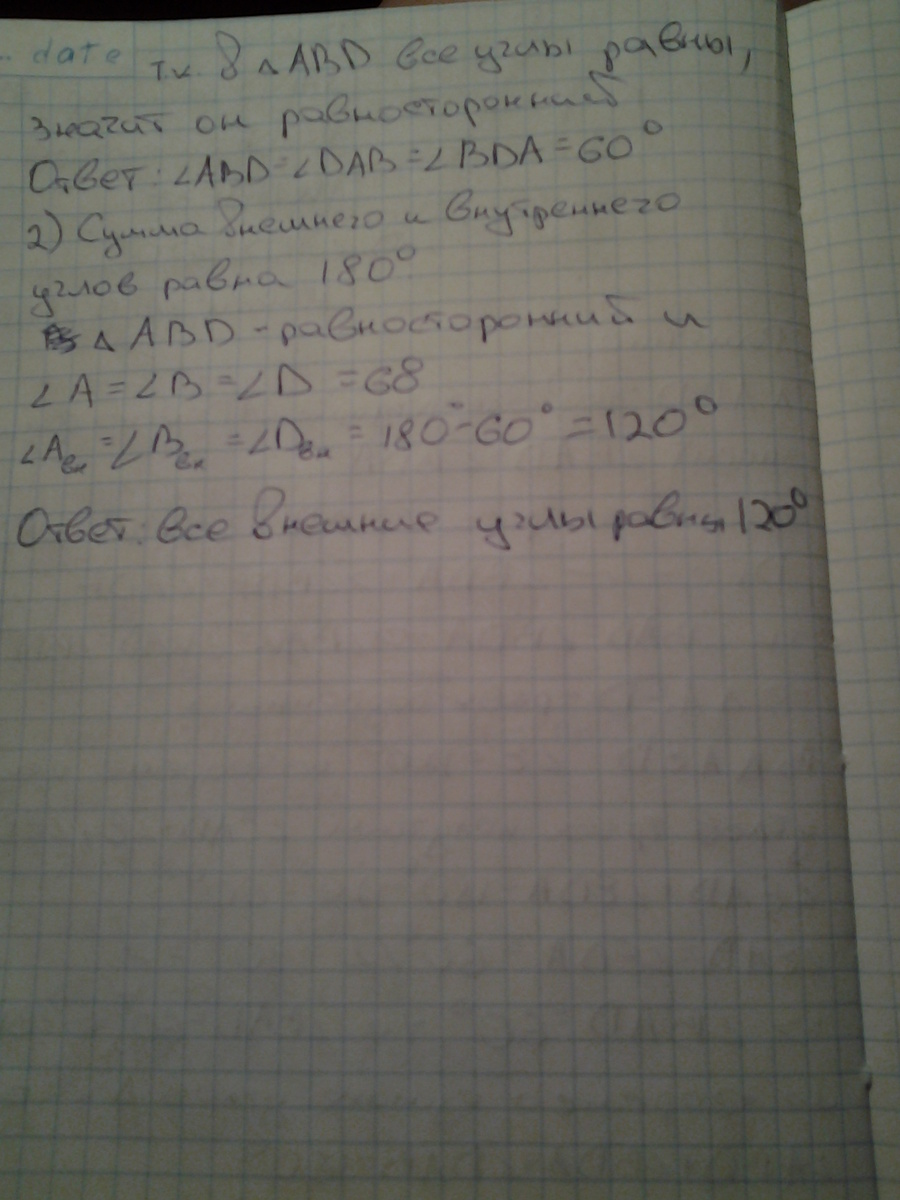 date
т.к. в △ABD все углы равны,
значит он равносторонний
Ответ: ∠ABD=∠DAB=∠BDA=60°
2) Сумма внешнего и внутреннего
углов равна 180°
△ABD - равносторонний и
∠A=∠B=∠D=68
∠Aвн=∠Bвн=∠Dвн=180°-60°=120°
Ответ: все внешние углы равны 120°